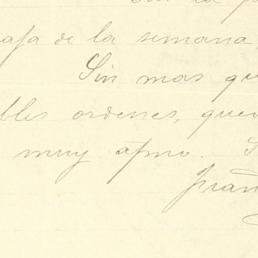 de la semana,
Sin mas que
bles ordenes, que
muy afmo. S
Fran